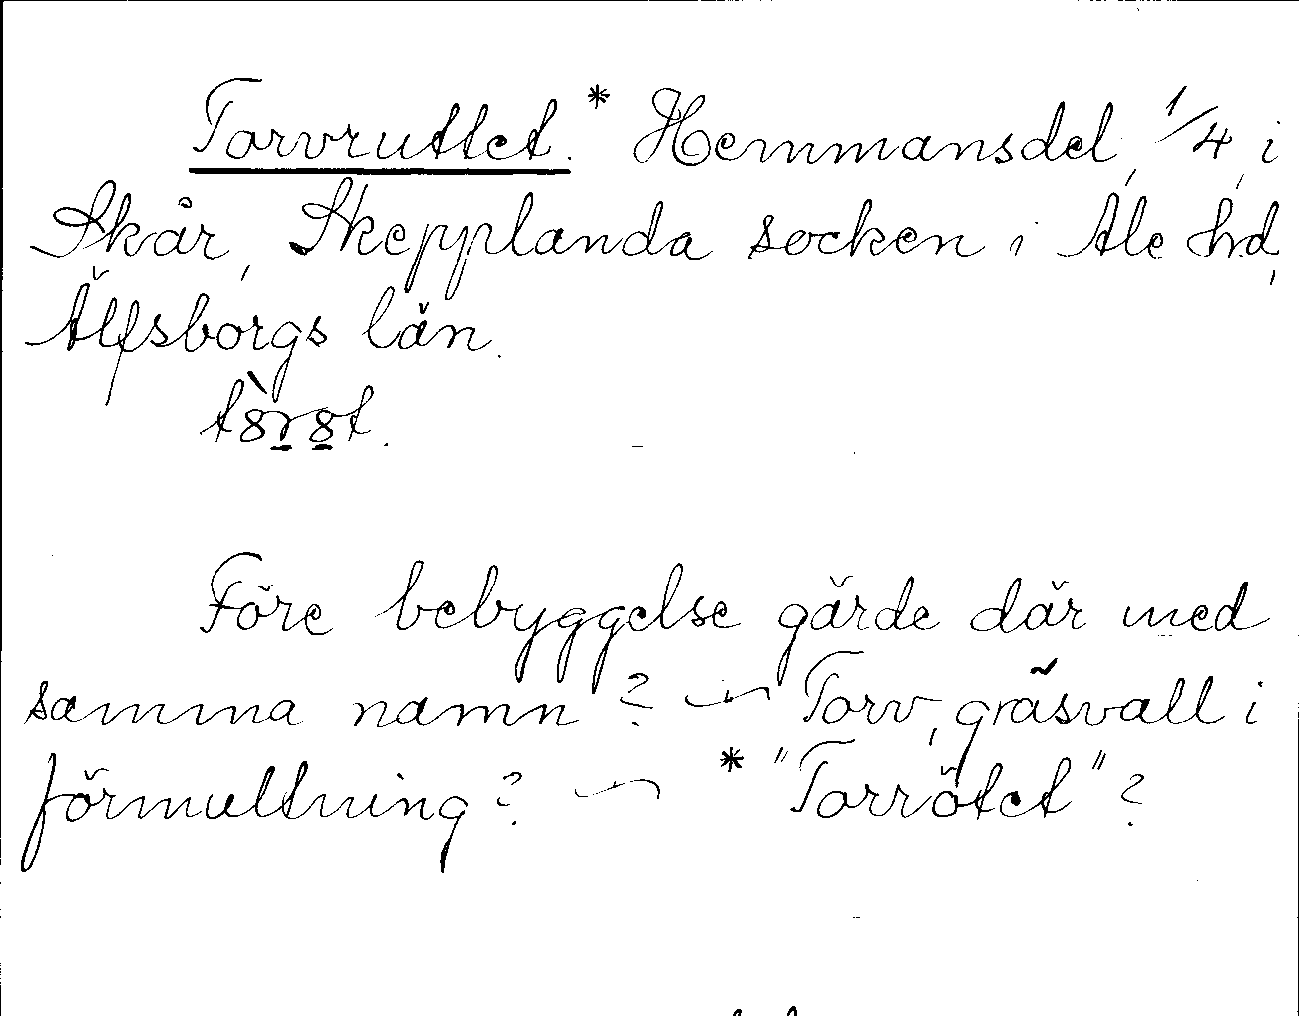 Torvruttet.* Hemmansdel, 1/4, i
Skår, Skepplanda socken i Ale hd,
Älfsborgs län.
Före bebyggelse gärde där med
samma namn? — Torv, gräsvall i
förmultning? — * "Torrötet"?